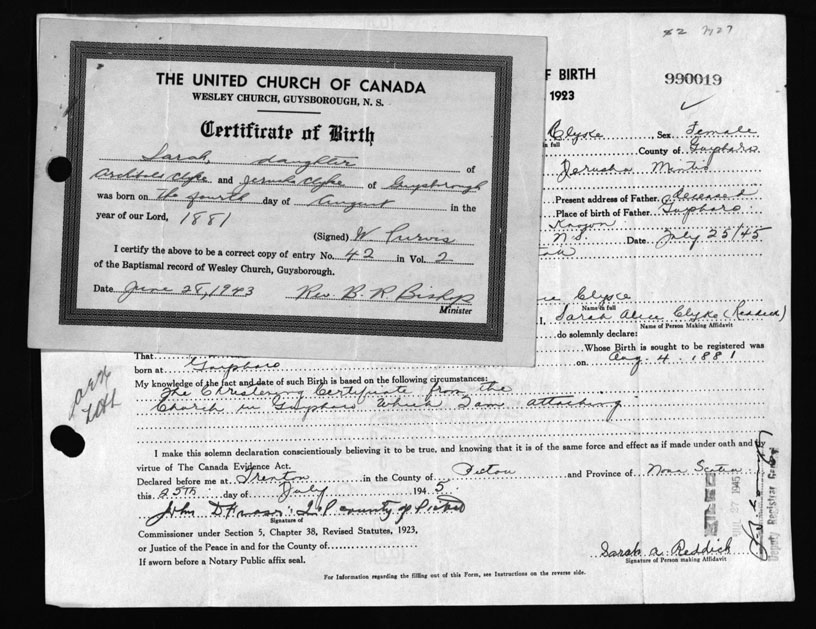 82 7927
THE UNITED CHURCH OF CANADA
WESLEY CHURCH, GUYSBOROUGH, N. S.
Certificate of Birth
Sarah, daughter of
Archibald Clyke and Jerusha Clyke of Guysborough
was born on The fourth day of August in the
year of our Lord, 1881
(Signed) W Purvis
I certify the above to be a correct copy of entry No. 42 in Vol. 2
of the Baptismal record of Wesley Church, Guysborough.
Date June 28, 1943 Rev. B. R Bishop
Minister
F BIRTH
1923
990019
Clyke, Sex Female
in full
County of Guysboro
Jerusha
Present address of Father deceased
Place of birth of Father Guysboro
N.S. Date July 25/45
Clyke
Name in full
I, Sarah Alice Clyke (Reddick)
Name of Person Making Affidavit
do solemnly declare:
That Whose Birth is sought to be registered was
born at Guysboro on Aug. 4. 1881
My knowledge of the fact and date of such Birth is based on the following circumstances:
The Christening Certificate from the
Church in Guysboro which I am attaching
I make this solemn declaration conscientiously believing it to be true, and knowing that it is of the same force and effect as if made under oath and by
virtue of The Canada Evidence Act.
Declared before me at Trenton in the County of Pictou and Province of Nova Scotia
this 25th day of July 1945
John D Fraser J.P. county of Pictou
Signature of
Commissioner under Section 5, Chapter 38, Revised Statutes, 1923,
or Justice of the Peace in and for the County of
If sworn before a Notary Public affix seal.
Sarah A. Reddick
Signature of Person making Affidavit
JUL 27 1945
Deputy Registrar General
For Information regarding the filling out of this Form, see Instructions on the reverse side.